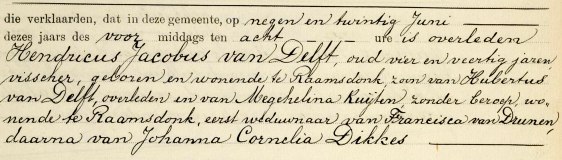 die verklaarden, dat in deze gemeente, op negen en twintig Juni
dezes jaars des voor middags ten acht ure is overleden
Hendricus Jacobus van Delft, oud vier en veertig jaren
visscher, geboren en wonende te Raamsdonk, zoon van Hubertus
van Delft, overleden en van Megchelina Kuijten, zonder beroep, wo-
nende te Raamsdonk, eerst weduwnaar van Francisca van Drunen,
daarna van Johanna Cornelia Dikkes